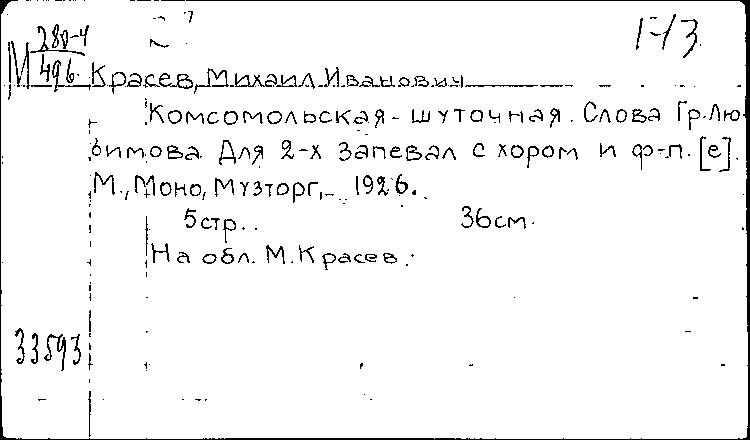 M 280-4 I-13
496. Красев, Михаил Иванович
Комсомольская-шуточная. Слова Гр. Лю-
бимова. Для 2-х запевал с хором и ф-п. [е].
М., Моно, Музторг, 1926.
5стр. 36см.
На обл. М. Красев.
33593